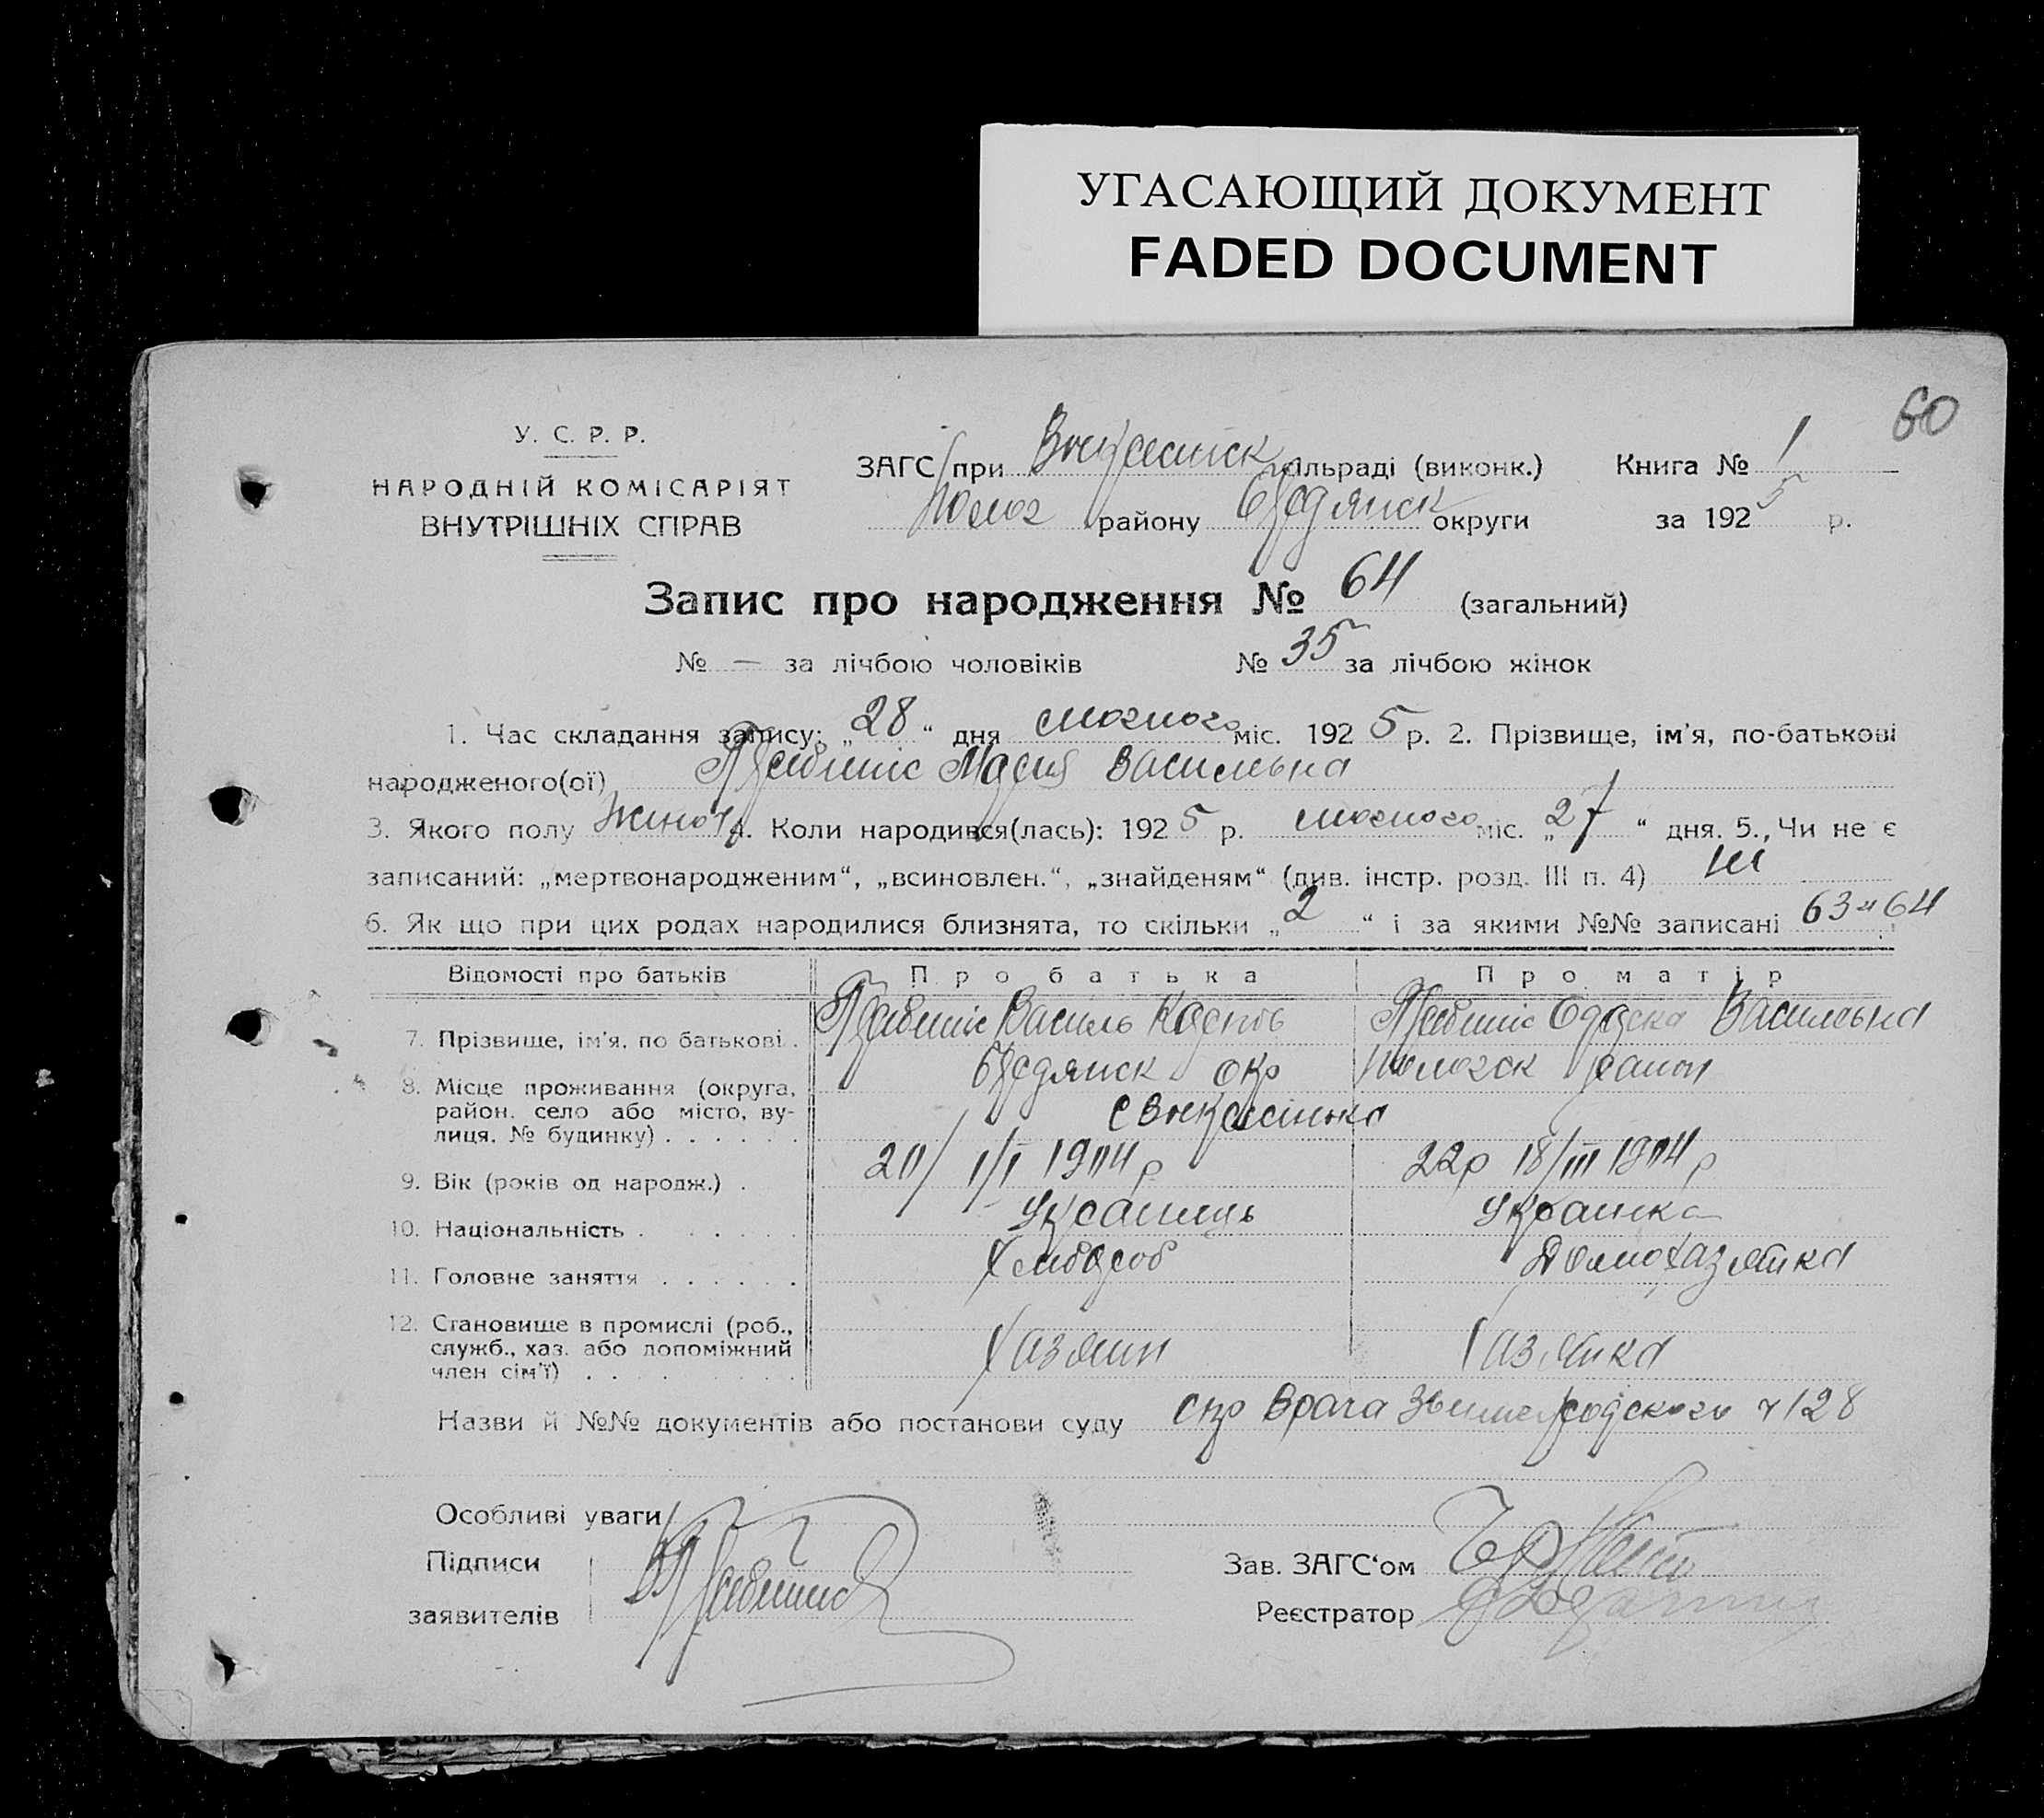 УГАСАЮЩИЙ ДОКУМЕНТ
FADED DOCUMENT
60
У. С. Р. Р.
НАРОДНІЙ КОМІСАРІЯТ
ВНУТРІШНІХ СПРАВ
ЗАГС при Воскресінск сільраді (виконк.)
Полог району Бердянск округи
Книга № 1
за 1925 р.
Запис про народження № 64 (загальний)
№ — за лічбою чоловіків № 35 за лічбою жінок
1. Час складання запису: „28“ дня лютого міс. 1925 р. 2. Прізвище, ім'я, по-батькові
народженого(ої) Мария Васильвна
3. Якого полу Жіноч 4. Коли народився(лась): 1925 р. лютого міс. „27“ дня. 5. Чи не є
записаний: „мертвонародженим“, „всиновлен.“, „знайденям“ (див. інстр. розд. III п. 4)
6. Як що при цих родах народилися близнята, то скільки „2“ і за якими №№ записані 63 и 64
Відомості про батьків Про батька Про матір
7. Прізвище, ім'я, по батькові. Василь Васильвна
8. Місце проживання (округа, район, село або місто, вулиця, № будинку) Бердянск окр Пологск район
с Воскресінка
9. Вік (років од народж.) 1/I 1904 р 22р 18/III 1904 р
10. Національність Українець Українка
11. Головне заняття Хлібороб Домохазяйка
12. Становище в промислі (роб., служб., хаз. або допоміжний член сім'ї) Хазяин Хазяйка
Назви й №№ документів або постанови суду спр Врача Звенигородского ч 128
Особливі уваги
Підписи
заявителів
Зав. ЗАГС'ом
Реєстратор